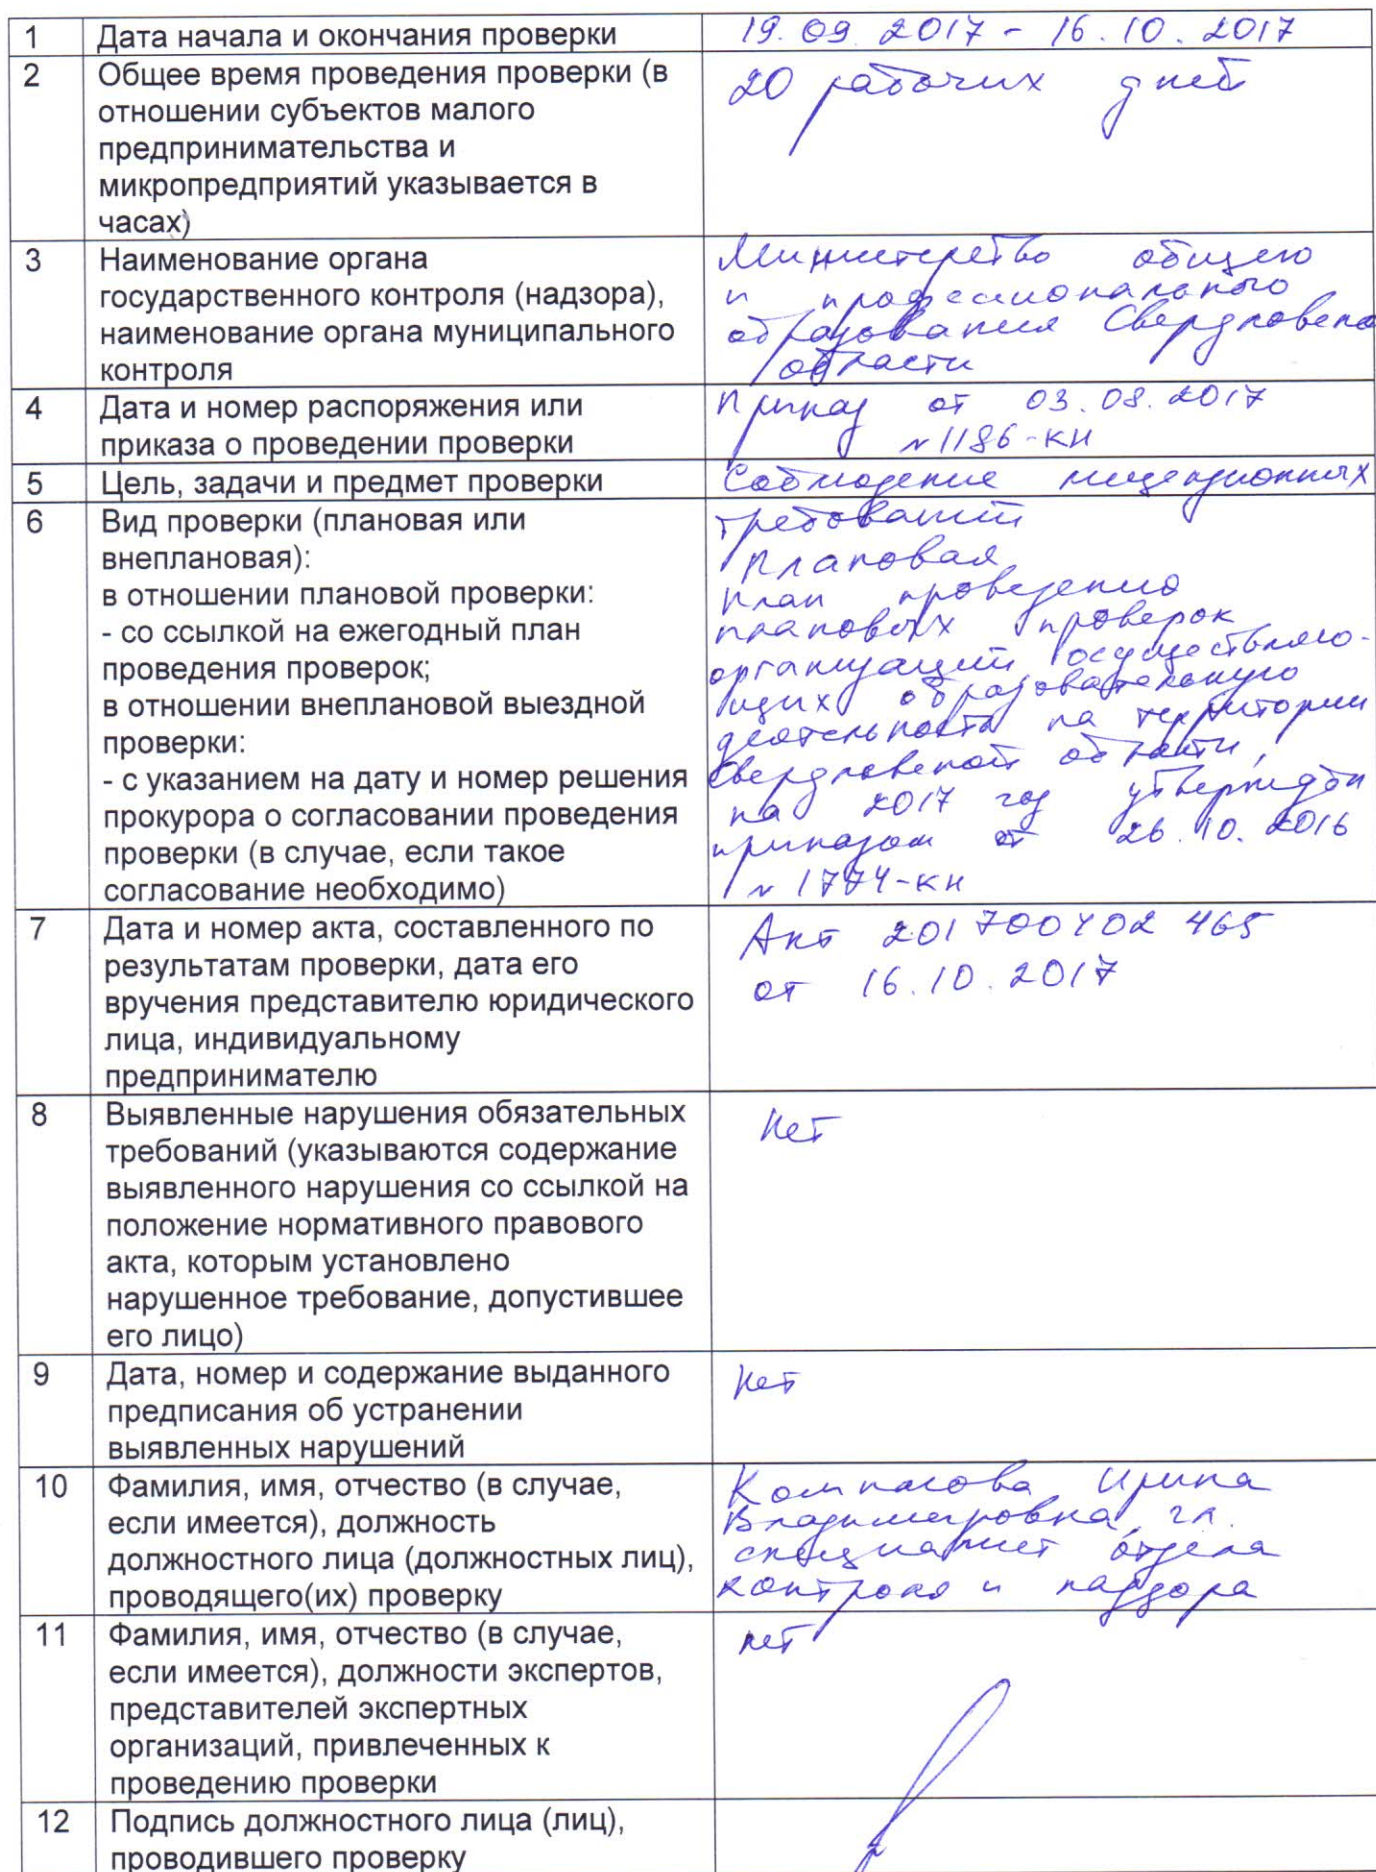 1 Дата начала и окончания проверки 19.09.2017 - 16.10.2017
2 Общее время проведения проверки (в
отношении субъектов малого
предпринимательства и
микропредприятий указывается в
часах)
20 рабочих дней
3 Наименование органа
государственного контроля (надзора),
наименование органа муниципального
контроля
Министерство общего
и профессионального
образования Свердловской
области
4 Дата и номер распоряжения или
приказа о проведении проверки
Приказ от 03.08.2017
№1186-КН
5 Цель, задачи и предмет проверки Соблюдение лицензионных
требований
6 Вид проверки (плановая или
внеплановая):
в отношении плановой проверки:
- со ссылкой на ежегодный план
проведения проверок;
в отношении внеплановой выездной
проверки:
- с указанием на дату и номер решения
прокурора о согласовании проведения
проверки (в случае, если такое
согласование необходимо)
Плановая
план проведения
плановых проверок
организаций осуществляю-
щих образовательную
деятельность на территории
Свердловской области,
на 2017 год утверждён
приказом от 26.10.2016
№ 1774-КН
7 Дата и номер акта, составленного по
результатам проверки, дата его
вручения представителю юридического
лица, индивидуальному
предпринимателю
Акт 201700402465
от 16.10.2017
8 Выявленные нарушения обязательных
требований (указываются содержание
выявленного нарушения со ссылкой на
положение нормативного правового
акта, которым установлено
нарушенное требование, допустившее
его лицо)
Нет
9 Дата, номер и содержание выданного
предписания об устранении
выявленных нарушений
Нет
10 Фамилия, имя, отчество (в случае,
если имеется), должность
должностного лица (должностных лиц),
проводящего(их) проверку
Ирина
Владимировна, гл.
специалист отдела
контроля и надзора
11 Фамилия, имя, отчество (в случае,
если имеется), должности экспертов,
представителей экспертных
организаций, привлеченных к
проведению проверки
нет
12 Подпись должностного лица (лиц),
проводившего проверку